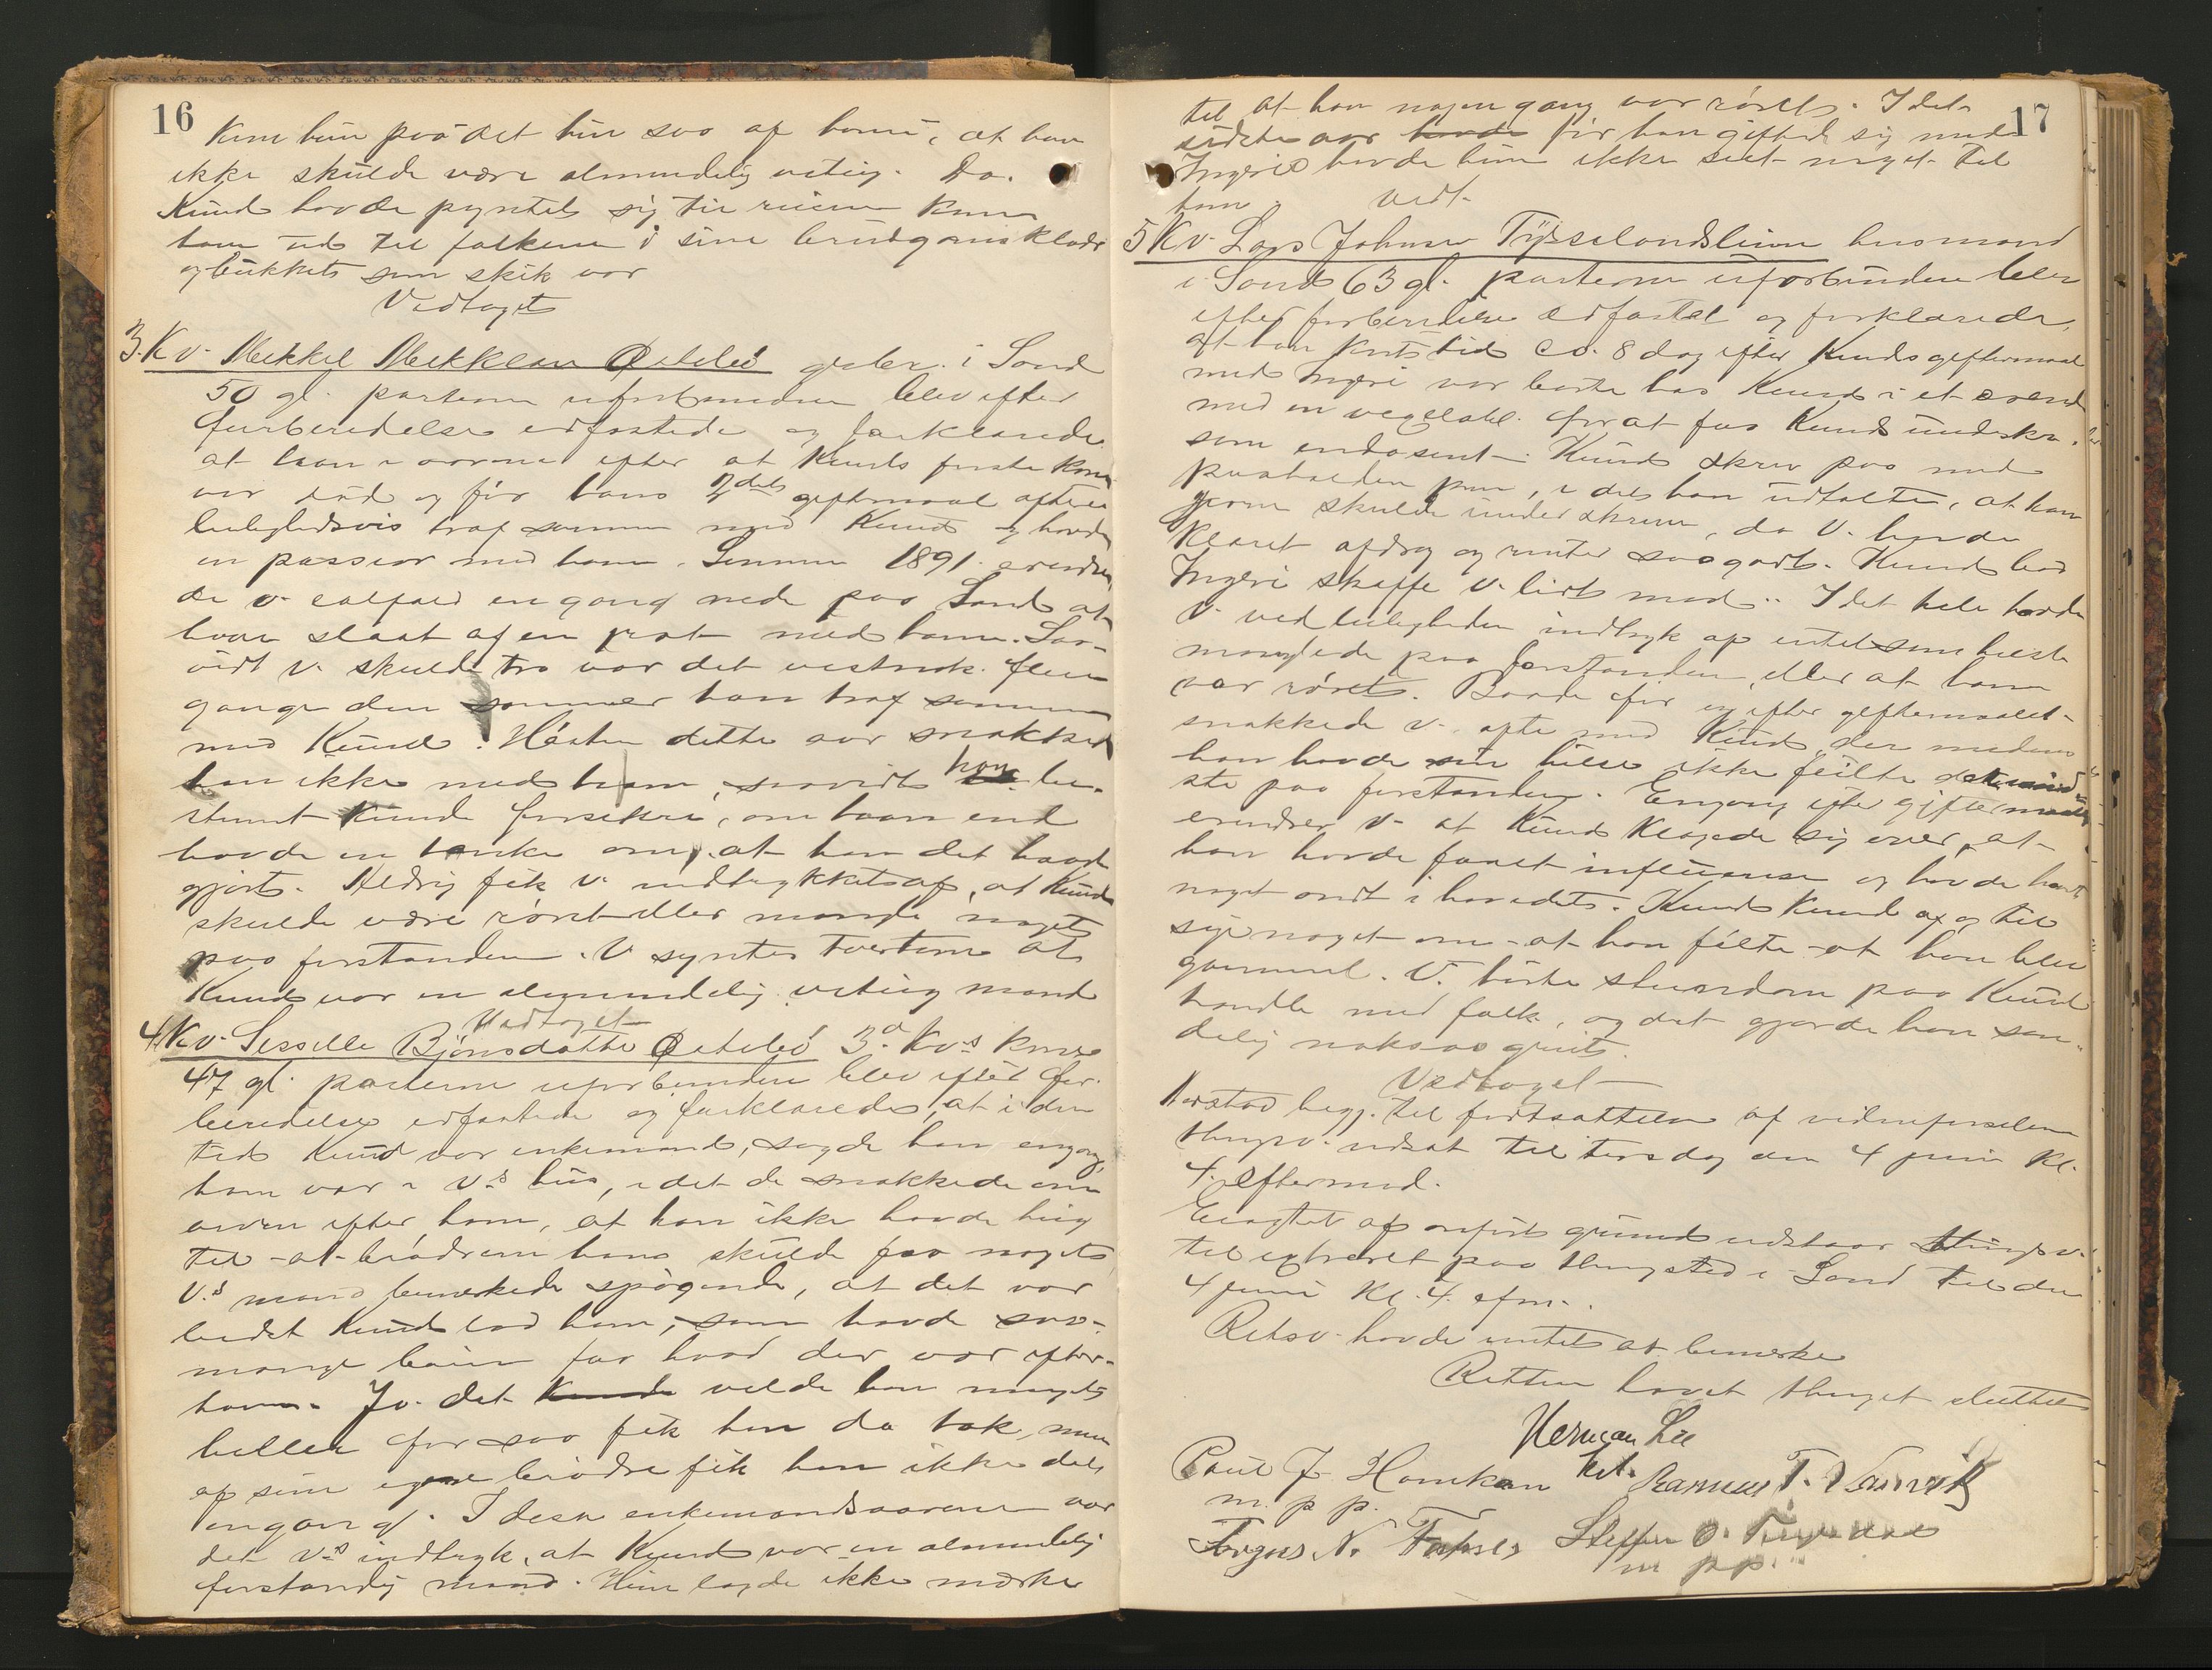 16
Kun hun paa det hun saa af ham, at han
ikke skulde være almindelig vetug. Da
Knud havde pyntet sig til rusen kom
han ud til folkene i sine brudgomsklæder
og bukket som skik var
Vedtaget
3. Kv. Mekkel Mekklsen Østebø gbr. i Sand
50 gl. parterne uforbunden blev efter
forberedelse edfæstede og forklarede
at han i aarene efter at Knuds første kone
var død og før hans 2det giftermaal oftere
leilighedsvis traf sammen med Knud og havde
en passiar med ham. Sommer 1891 erindre
de v. ialfald en gang nede paa Sand at
have slaaet af en prat med ham. Saa-
vidt v. skulde tro var det vistnok flere
gange den sommer han traf sammen
med Knud. Høsten dette aar snakked
han ikke med ham, saavidt han be-
stemt kunde forsikre, om han end
havde en tanke om, at han det havde
gjort. Aldrig fik v. indtrykket af, at Knud
skulde være røret eller mangle noget
paa forstanden. V syntes tvertom at
Knud var en almindelig vetug mand
Vedtaget
4 Kv. Sesselle Bjørnsdatter Østebø 3d Kvs kone
47 gl. parterne uforbunden blev efter for-
beredelse edfæstede og forklarede, at i den
tid Knud var enkemand, sagde han engang,
han var i V.s hus, idet de snakkede om
arven efter ham, at han ikke havde hug
til at brødrene hans skulde faa noget
V.s mand bemerkede spøgende, at det var
bedst Knud lod ham, som havde saa-
mange børn faa hvad der var efter
ham. Jo det Kunde vilde han meget
heller for saa fik han da tak, men
af sine egne brødre fik han ikke det
engang. I disse enkemandsaarene var
det V.s indtryk, at Knud var en almindelig
forstandig mand. Hun lagde ikke mærke
17
til at han nogen gang var røret. I det
sidste aar havde før han giftede sig med
Ingeri havde hun ikke seet noget til
ham. Vedt.
5 Kv. Lars Johnsen Tysselandslien husmand
i Sand 63 gl. parterne uforbunden blev
efter forberedelse edfæstet og forklarede,
at han kort tid ca. 8 dag efter Knuds giftermaal
med Ingeri var borte hos Knud i et ærend
med en vexelobl. for at faa Knud underskr.
som endosent. Knud skrev paa med
paaholden pen, idet han udtalte, at han
gjerne skulde underskrive, da V. havde
klaret afdrag og renter saa godt. Knud bad
Ingeri skaffe V. lidt mad. I det hele havde
V. ved leiligheden indtryk af intet som helst
manglede paa forstanden, eller at han
var røret. Baade før og efter giftermaalet
snakkede V. ofte med Knud, der medens
han havde sin helse ikke feilte det mind
ste paa forstanden. Engang efter giftermaalet
erindrer V. at Knud klagede sig over, at
han havde faaet influensa og havde havt
noget ondt i hovedet. Knud kunde af og til
sige noget om at han følte at han blev
gammel. V. hørte stundom paa Knud
handle med folk, og det gjorde han san-
delig noksaa greit.
Vedtaget
Aarstad begj. til fortsættelse af vidneførselen
thingsv. udsat til torsdag den 4 juni kl.
4 eftermd.
Eragtet af anført grund udstaar thingsv.
til extraret paa thingsted i Sand til den
4 juni kl. 4 efm.
Retsv. havde intet at bemerke
Retten hævet thinget sluttet
Herman Lie
kst.
Poul J. Homkan Rasmus T.
m. p p.
Torger N. Steffen O.
m p p.